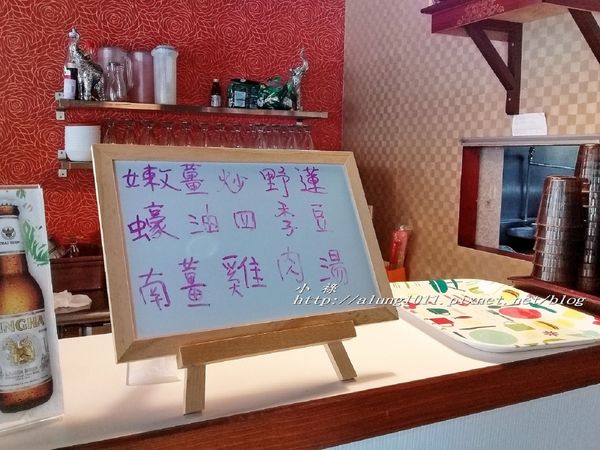 嫩薑炒野蓮
蠔油四季豆
南薑雞肉湯
小祿
http://alung1011.pixnet.net/blog
SINGHA